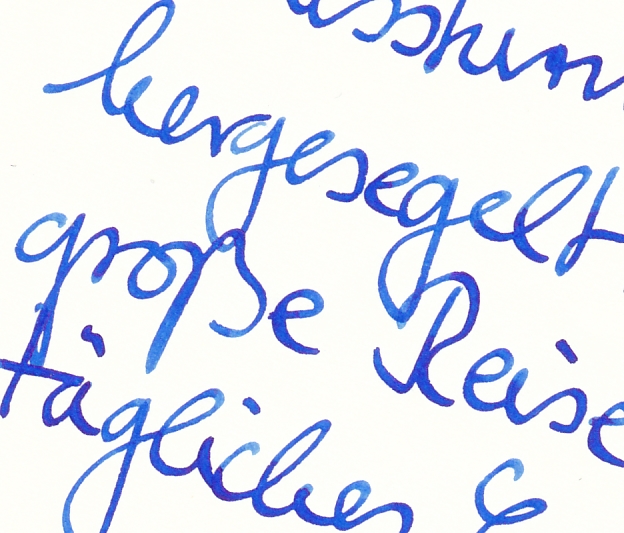 hergesegelt
große Reise
täglichen